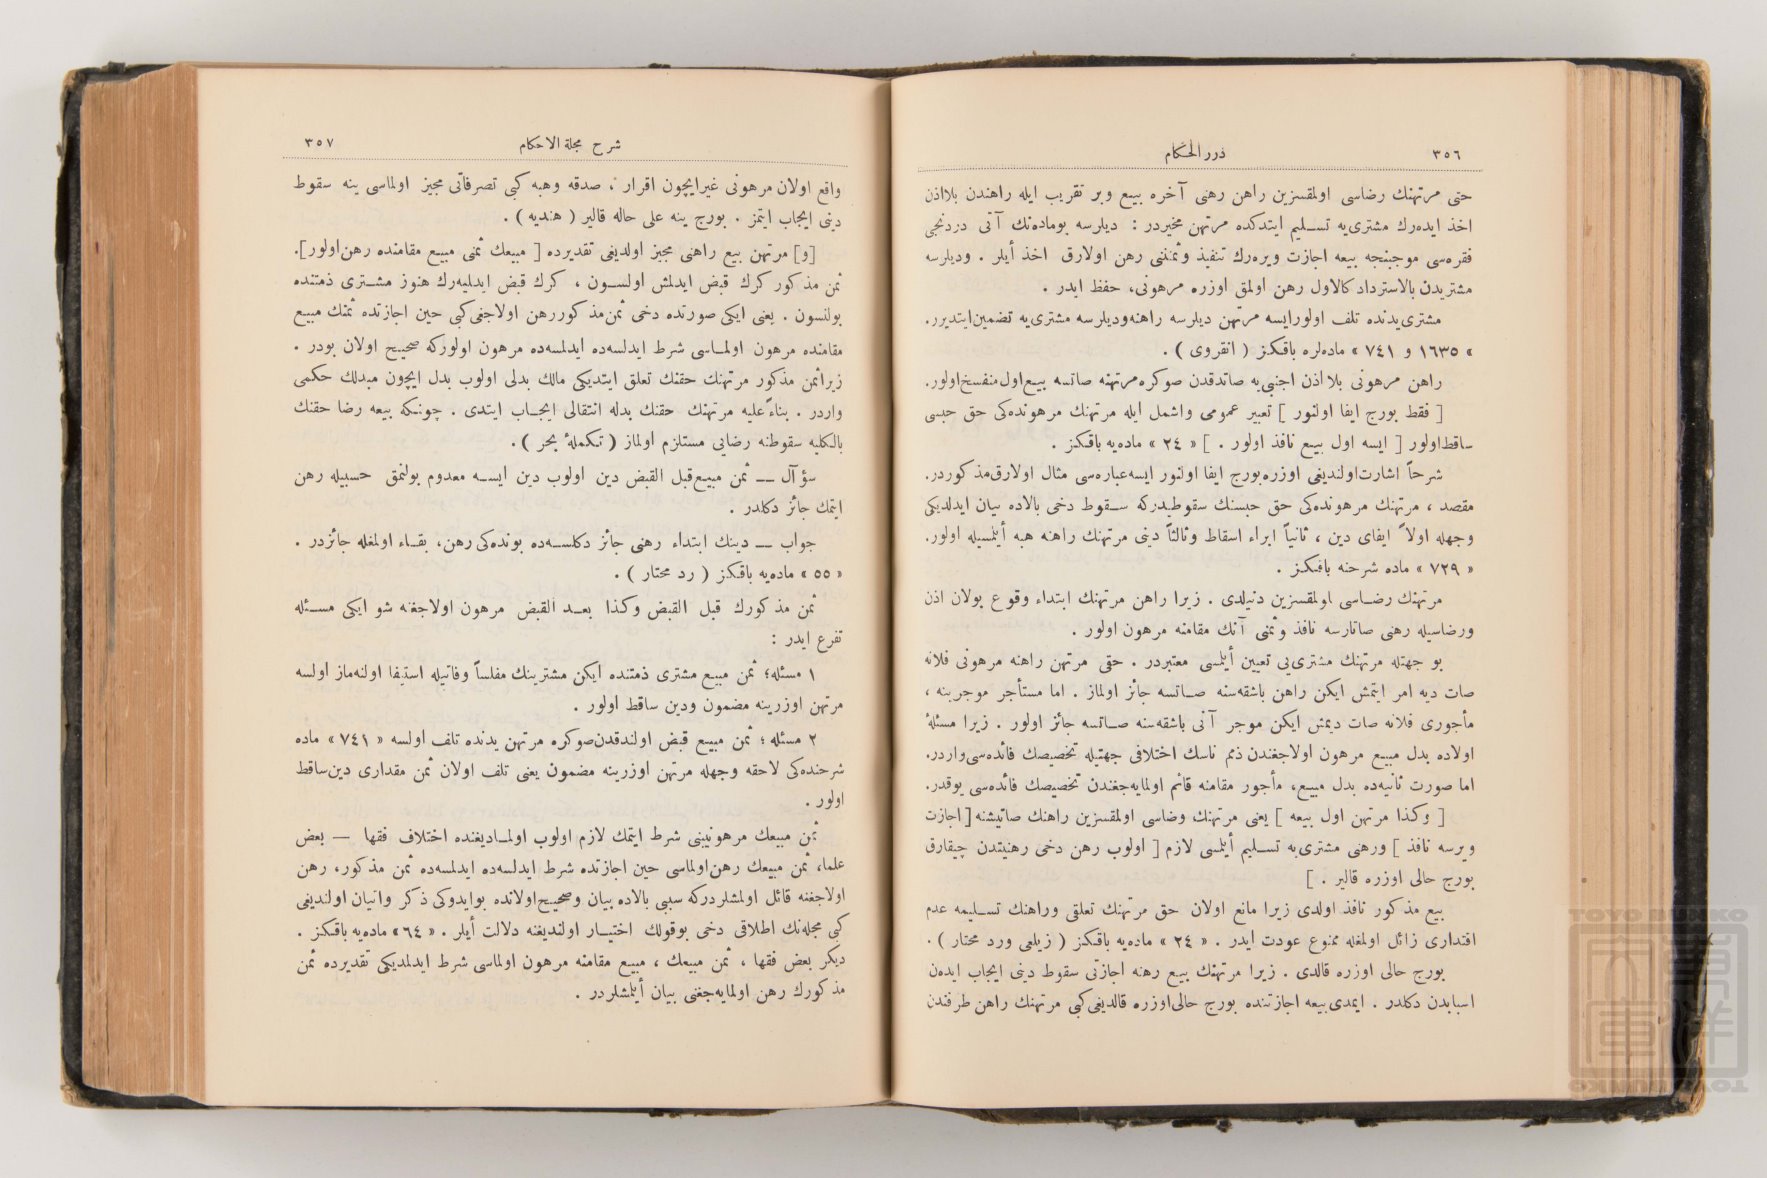 ٣٥٦
درر الحكام
حتى مرتهنك رضاسى اولمقسزين راهن رهنى آخره بيع وبر تقريب ايله راهندن بلااذن
اخذ ايده‌رك مشترى‌يه تسليم ايتدكده مرتهن مخيردر : ديلرسه بوماده‌نك آتى دردنجى
فقره‌سى موجبنجه بيعه اجازت ويره‌رك تنفيذ وثمننى رهن اولارق اخذ أيلر . وديلرسه
مشتريدن بالاسترداد كالاول رهن اولمق اوزره مرهونى، حفظ ايدر .
مشترى‌يدنده تلف اولورايسه مرتهن ديلرسه راهنه‌وديلرسه مشترى‌يه تضمين‌ايتديرر.
« ١٦٣٥ و ٧٤١ » ماده‌لره باقكز ( انقروى ) .
راهن مرهونى بلااذن اجنبى‌يه صاتدقدن صوكره‌مرتهنه صاتسه بيع‌اول‌منفسخ‌اولور.
[ فقط بورج ايفا اولنور ] تعبير عمومى واشمل ايله مرتهنك مرهونده‌كى حق حبسى
ساقط‌اولور [ ايسه اول بيع نافذ اولور . ] « ٢٤ » ماده‌يه باقكز .
شرحاً اشارت‌اولنديغى اوزره‌بورج ايفا اولنور ايسه‌عباره‌سى مثال اولارق‌مذكوردر.
مقصد ، مرتهنك مرهونده‌كى حق حبسنك سقوطيدركه سقوط دخى بالاده بيان ايدلديكى
وجهله اولاً ايفاى دين ، ثانياً ابراء اسقاط وثالثاً دينى مرتهنك راهنه هبه أيلمسيله اولور.
« ٧٢٩ » ماده شرحنه باقكز .
مرتهنك رضاسى اولمقسزين دنيلدى . زيرا راهن مرتهنك ابتداء وقوع بولان اذن
ورضاسيله رهنى صاتارسه نافذ وثمنى آنك مقامنه مرهون اولور .
بو جهتله مرتهنك مشترى‌يى تعيين أيلمسى معتبردر . حتى مرتهن راهنه مرهونى فلانه
صات ديه امر ايتمش ايكن راهن باشقه‌سنه صاتسه جائز اولماز . اما مستأجر موجرينه ،
مأجورى فلانه صات ديمش ايكن موجر آنى باشقه‌سنه صاتسه جائز اولور . زيرا مسئلۀ
اولاده بدل مبيع مرهون اولاجغندن ذمم ناسك اختلافى جهتيله تخصيصك فائده‌سى‌واردر.
اما صورت ثانيه‌ده بدل مبيع، مأجور مقامنه قائم اولمايه‌جغندن تخصيصك فائده‌سى يوقدر.
[ وكذا مرتهن اول بيعه ] يعنى مرتهنك رضاسى اولمقسزين راهنك صاتيشنه [ اجازت
ويرسه نافذ ] ورهنى مشترى‌يه تسليم أيلمسى لازم [ اولوب رهن دخى رهنيتدن چيقارق
بورج حالى اوزره قالير . ]
بيع مذكور نافذ اولدى زيرا مانع اولان حق مرتهنك تعلقى وراهنك تسليمه عدم
اقتدارى زائل اولمغله ممنوع عودت ايدر . « ٢٤ » ماده‌يه باقكز ( زيلعى ورد محتار ) .
بورج حالى اوزره قالدى . زيرا مرتهنك بيع رهنه اجازتى سقوط دينى ايجاب ايدن
اسبابدن دكلدر . ايمدى‌بيعه اجازتنده بورج حالى‌اوزره قالديغى‌كبى مرتهنك راهن طرفندن
شرح مجلة الاحكام
٣٥٧
واقع اولان مرهونى غيرايچون اقرار ، صدقه وهبه كبى تصرفاتى مجيز اولماسى ينه سقوط
دينى ايجاب ايتمز . بورج ينه على حاله قالير ( هنديه ) .
[و] مرتهن بيع راهنى مجيز اولديغى تقديرده [ مبيعك ثمنى مبيع مقامنده رهن‌اولور].
ثمن مذكور كرك قبض ايدلمش اولسون ، كرك قبض ايدلميه‌رك هنوز مشترى ذمتنده
بولنسون . يعنى ايكى صورتده دخى ثمن‌مذكوررهن اولاجغى‌كبى حين اجازتده ثمنك مبيع
مقامنده مرهون اولماسى شرط ايدلسه‌ده ايدلمسه‌ده مرهون اولوركه صحيح اولان بودر .
زيراثمن مذكور مرتهنك حقنك تعلق ايتديكى مالك بدلى اولوب بدل ايچون مبدلك حكمى
واردر . بناءً عليه مرتهنك حقنك بدله انتقالى ايجاب ايتدى . چونكه بيعه رضا حقنك
بالكليه سقوطنه رضايى مستلزم اولماز ( تكملۀ بحر ) .
سؤآل — ثمن مبيع‌قبل القبض دين اولوب دين ايسه معدوم بولنمق حسبيله رهن
ايتمك جائز دكلدر .
جواب — دينك ابتداء رهنى جائز دكلسه‌ده بونده‌كى رهن، بقاء اولمغله جائزدر .
« ٥٥ » ماده‌يه باقكز ( رد محتار ) .
ثمن مذكورك قبل القبض وكذا بعد القبض مرهون اولاجغنه شو ايكى مسئله
تفرع ايدر :
١ مسئله؛ ثمن مبيع مشترى ذمتنده ايكن مشترينك مفلساً وفاتيله استيفا اولنه‌ماز اولسه
مرتهن اوزرينه مضمون ودين ساقط اولور .
٢ مسئله ؛ ثمن مبيع قبض اولندقدن‌صوكره مرتهن يدنده تلف اولسه « ٧٤١ » ماده
شرحنده‌كى لاحقه وجهله مرتهن اوزرينه مضمون يعنى تلف اولان ثمن مقدارى دين‌ساقط
اولور .
ثمن مبيعك مرهونيتنى شرط ايتمك لازم اولوب اولماديغنده اختلاف فقها — بعض
علما، ثمن مبيعك رهن‌اولماسى حين اجازتده شرط ايدلسه‌ده ايدلمسه‌ده ثمن مذكور، رهن
اولاجغنه قائل اولمشلردركه سببى بالاده بيان وصحيح‌اولانده بوايدوكى ذكر واتيان اولنديغى
كبى مجله‌نك اطلاقى دخى بوقولك اختيار اولنديغنه دلالت أيلر . « ٦٤ » ماده‌يه باقكز .
ديكر بعض فقها ، ثمن مبيعك ، مبيع مقامنه مرهون اولماسى شرط ايدلمديكى تقديرده ثمن
مذكورك رهن اولمايه‌جغنى بيان أيلمشلردر .
TOYO BUNKO